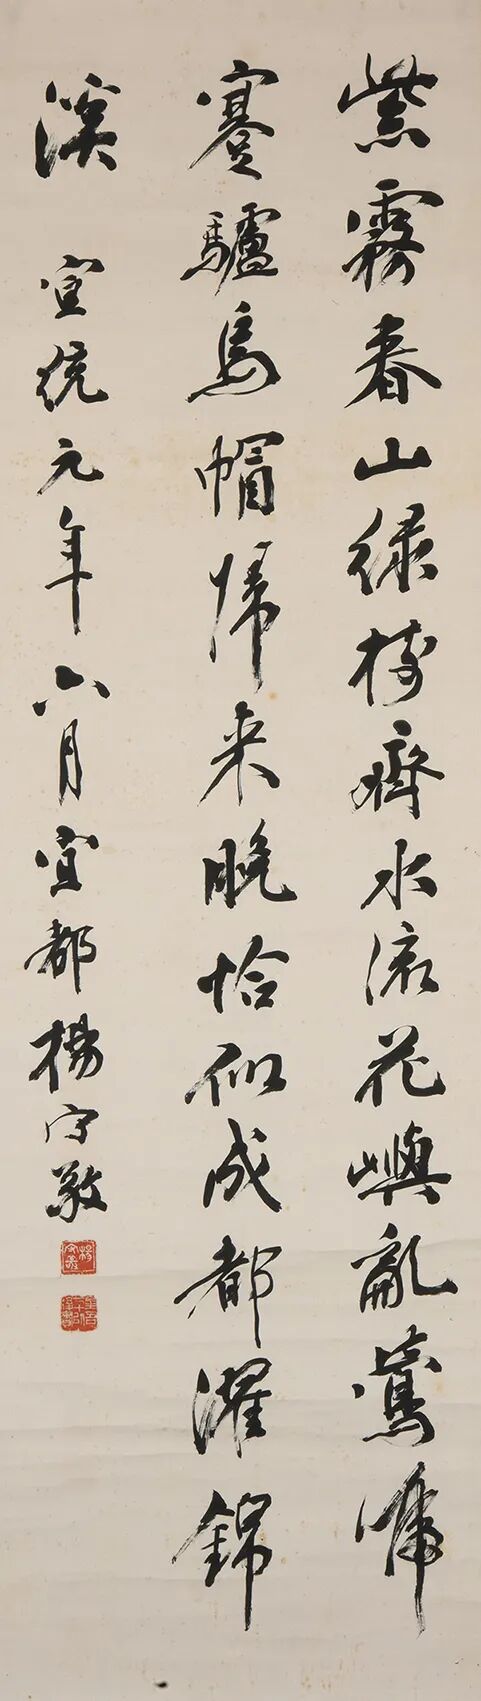 紫霧春山綠樹齊水流花嶼亂鶯啼
蹇驢烏帽歸来晚恰似成都濯錦
溪 宣統元年六月宜都楊守敬